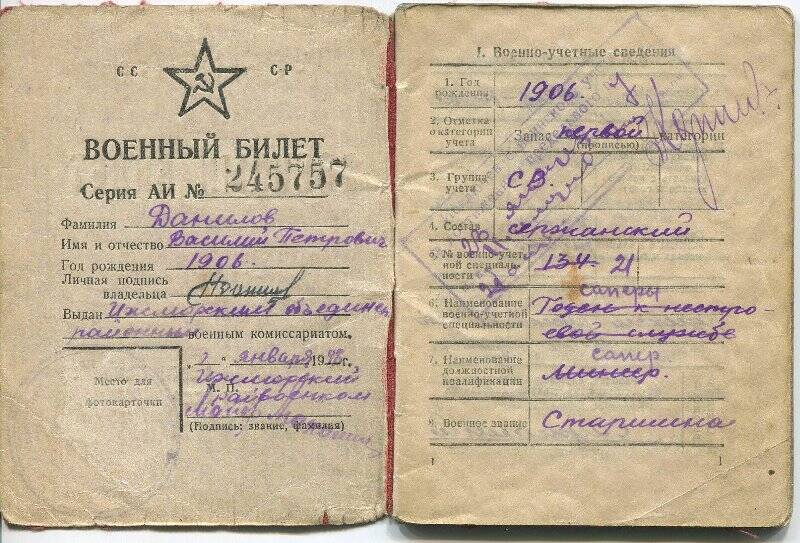 СС СР
ВОЕННЫЙ БИЛЕТ
Серия АИ № 245757
Фамилия Данилов
Имя и отчество Василий Петрович
Год рождения 1906.
Личная подпись
владельца
Выдан Ижморский объединен
районным военным комиссариатом.
января 1948г.
М. П.
Место для
фотокарточки
Ижморский
райвоенком
майор
(Подпись: звание, фамилия)
I. Военно-учетные сведения
1. Год
рождения 1906.
2. Отметка
о категории
учета
Запас первой категории
(прописью)
3. Группа
учета СВ.
4. Состав сержанский
5. № военно-учет
ной специаль-
ности 134-21
6. Наименование
военно-учетной
специальности
саперы
Годен к нестро-
евой службе
7. Наименование
должностной
квалификации
сапер
Минер.
8. Военное звание Старшина
1 1